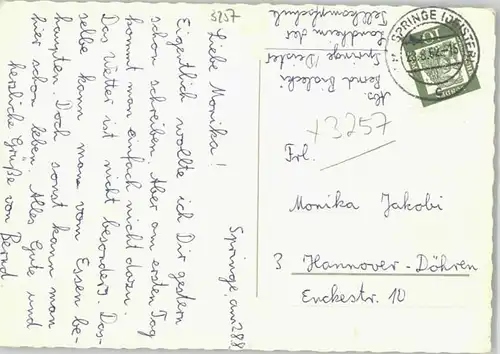 3257
Springe, am 28.8.
Liebe Monika!
Eigentlich wollte ich Dir gestern
schon schreiben. Aber am ersten Tag
kommt man einfach nicht dazu.
Das Wetter ist nicht besonders. Das-
selbe kann man vom Essen be-
haupten. Doch sonst kann man
hier schon leben. Alles Gute und
herzliche Grüße von
Bernd.
Abs.
Bernd Bialecki
Springe/Deister
Landheim der
Tellkampfschule
SPRINGE (DEISTER)
10
x3257
Frl.
Monika Jakobi
3 Hannover-Döhren
Enckestr. 10